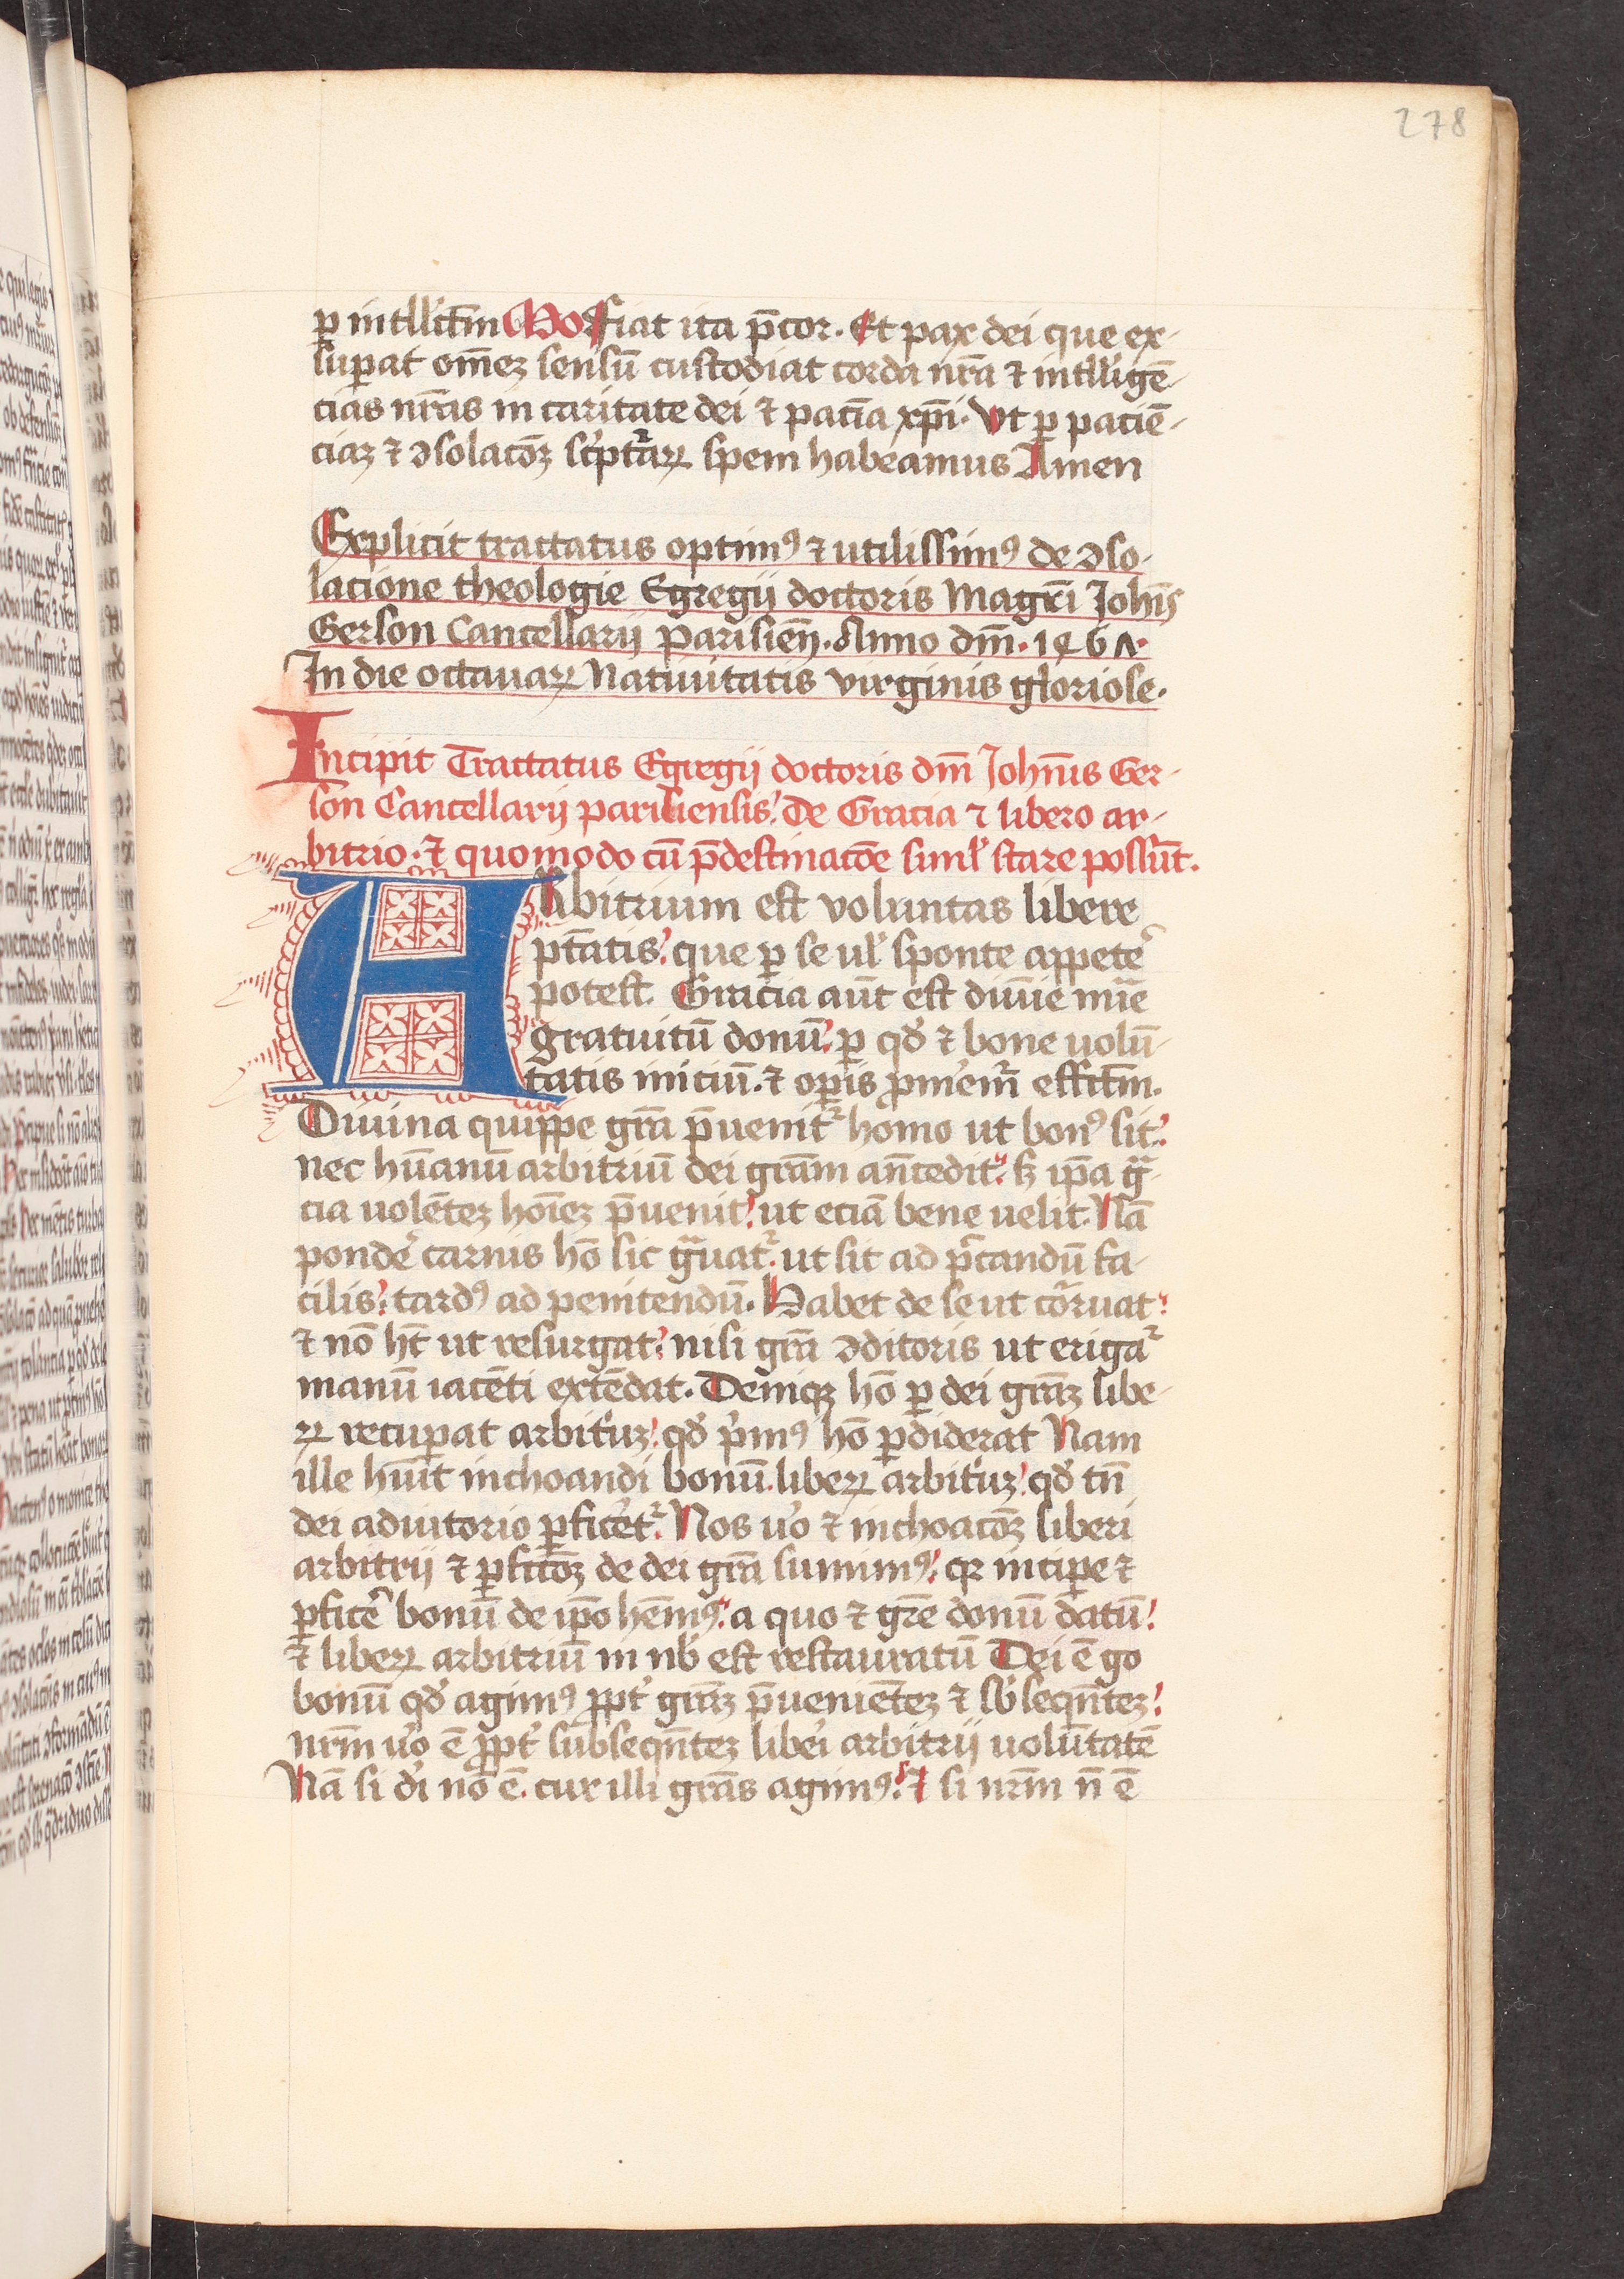 278
ꝑ intll̅ctm̅ Mo Fiat ita p̅cor. Et pax dei que ex-
suꝑat om̅eꝫ sensu̅ custodiat corda nr̅a ⁊ intll̅ige̅-
cias nr̅as in caritate dei ⁊ pacia̅ xp̅i. Vt ꝑ pacie̅-
ciaꝫ ⁊ ꝯsolaco̅ꝫ sc͛ptᷓaꝝ spem habeamus Amen
Explicit tractatus optimꝰ ⁊ utilissimꝰ de ꝯso-
lacione theologie Egregij doctoris Magr̅i Joh̅is
Gerson Cancellarij parisien̅. Anno dm̅. 146Λ.
In die octauaꝝ Natiuitatis virginis gloriose.
Incipit Tractatus Egregij doctoris dm̅ Joh̅nis Ger-
son Cancellarij parisiensis. De Gracia ⁊ libero ar-
bitrio. ⁊ quomodo cu̅ p̅destinaco̅e siml̕ stare possu̅t.
Arbitrium est voluntas libere
pt̅atis. que ꝑ se ul̕ sponte appete͛
potest. Gracia aut̅ est diuine mi̅e
gratuitu̅ donu̅. ꝑ qd̕ ⁊ bone uolu̅-
tatis iniciu̅. ⁊ oꝑis ꝓm͛em̅ effctm̅.
Diuina quippe gr̅a p̅uenitᷣ homo ut bonꝰ sit.
nec hu̅anu̅ arbitriu̅ dei gra̅m an̅cedit. sꝫ ip̅a gᷓ-
cia uole̅teꝫ ho̅ieꝫ p̅uenit. ut ecia̅ bene uelit. Na̅
ponde͛ carnis ho̅ sic gᷓuatᷣ. ut sit ad p̅ccandu̅ fa-
cilis. tardꝰ ad penitendu̅. Habet de se ut co͛ruat.
⁊ no̅ ht̅ ut resurgat. nisi gr̅a ꝯditoris ut erigaᷣ
manu̅ iace̅ti exte̅dat. Deniqꝫ ho̅ ꝑ dei gr̅aꝫ libe-
ꝝ recuꝑat arbit͛uꝫ. qd̕ p͛mꝰ ho̅ ꝑdiderat Nam
ille hu̅it inchoandi bonu̅. libeꝝ arbit͛uꝫ. qd̕ tn̅
dei adiutorio ꝑfice͛tᷣ. Nos u͛o ⁊ inchoaco̅ꝫ liberi
arbitrij ⁊ ꝑfcco̅ꝫ de dei gr̅a sumimꝰ. qꝛ inciꝑe ⁊
ꝑfice͛ bonu̅ de ip̅o he̅mꝰ. a quo ⁊ gr̅e donu̅ datu̅.
⁊ libeꝝ arbitriu̅ in nb̕ est restauratu̅ Dei e̅ go
bonu̅ qd̕ agimꝰ ꝓpt͛ gr̅aꝫ p̅uenie̅teꝫ ⁊ sb̕seqn̅teꝫ.
nr̅m u͛o e̅ ꝓpt͛ subseqn̅teꝫ libe͛i arbitrij uolu̅tate̅
Na̅ si di̕ no̅ e̅. cur illi gr̅as agimꝰ. ⁊ si nr̅m n̅ e̅